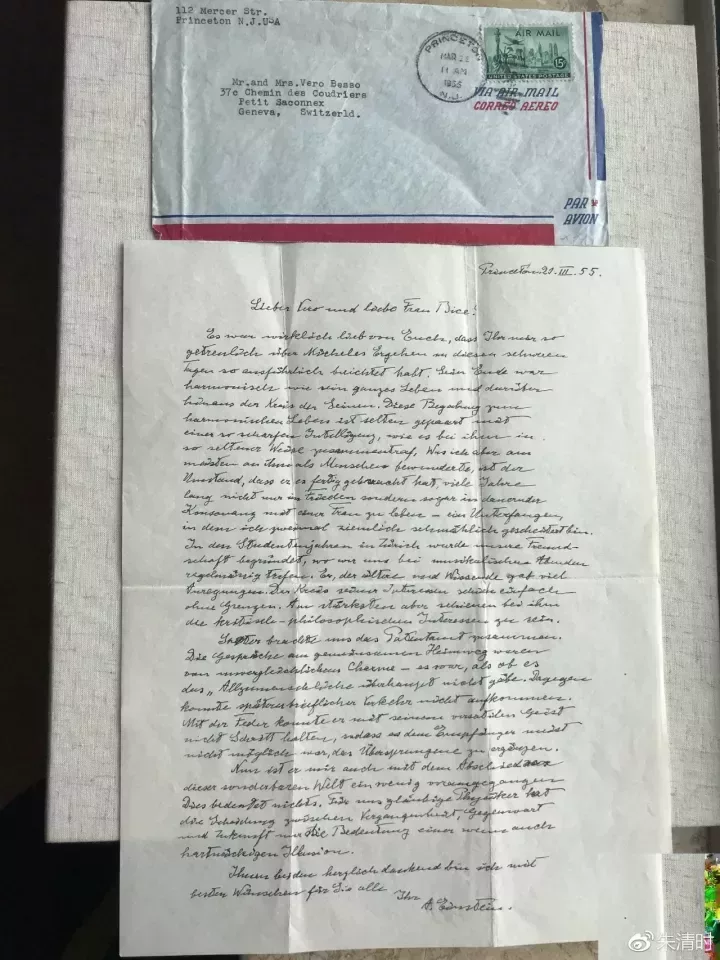 112 Mercer Str.
Princeton N.J.USA
PRINCETON
MAR
11 AM
1955
N.J.
AIR MAIL
15¢
UNITED STATES POSTAGE
VIA AIR MAIL
CORREO AEREO
Mr.and Mrs.Vero Besso
37c Chemin des Coudriers
Petit Saconnex
Geneva, Switzerld.
PAR
AVION
Princeton 21. III. 55.
Lieber Vero und liebe Frau Bice!
Es war wirklich lieb von Euch, dass Ihr mir so
getreulich über Micheles Ergehen in diesen schweren
Tagen so ausführlich berichtet habt. Sein Ende war
harmonisch wie sein ganzes Leben und darüber
hinaus der Kreis der Seinen. Diese Begabung zum
harmonischen Leben ist selten gepaart mit
einer so scharfen Intelligenz, wie es bei ihm in
so seltener Weise zusammentraf. Was ich aber am
meisten an ihm als Menschen bewunderte, ist der
Umstand, dass er es fertig gebracht hat, viele Jahre
lang nicht nur in Frieden sondern sogar in dauernder
Konsonanz mit einer Frau zu leben – ein Unterfangen,
in dem ich zweimal ziemlich schmählich gescheitert bin.
In den Studentenjahren in Zürich wurde unsere Freund-
schaft begründet, wo wir uns bei musikalischen Abenden
regelmässig trafen. Er, der ältere und Wissende gab viel
Anregungen. Der Kreis seiner Interessen schien einfach
ohne Grenzen. Am stärksten aber schienen bei ihm
die kritisch-philosophischen Interessen zu sein.
Später brachte uns das Patentamt zusammen.
Die Gespräche am gemeinsamen Heimweg waren
von unvergleichlichem Charme – es war, als ob es
das „Allzumenschliche überhaupt nicht gäbe. Dagegen
konnte später brieflicher Verkehr nicht aufkommen.
Mit der Feder konnte er mit seinem Geist
nicht Schritt halten, sodass es dem Empfänger meist
nicht möglich war, das Übersprungene zu ergänzen.
Nun ist er mir auch mit dem Abschied
dieser sonderbaren Welt ein wenig vorausgegangen
Dies bedeutet nichts. Für uns gläubige Physiker hat
die Scheidung zwischen Vergangenheit, Gegenwart
und Zukunft nur die Bedeutung einer wenn auch
hartnäckigen Illusion.
Ihnen beiden herzlich dankend bin ich mit
besten Wünschen für Sie alle Ihr
A. Einstein.
朱清时